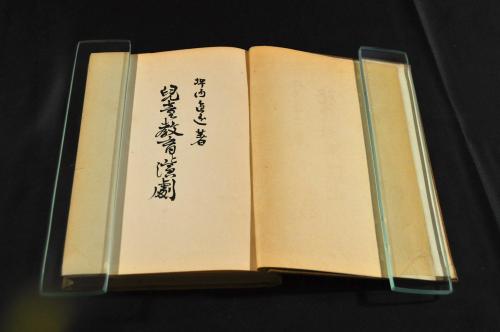 坪内逍遥著
兒童教育演劇